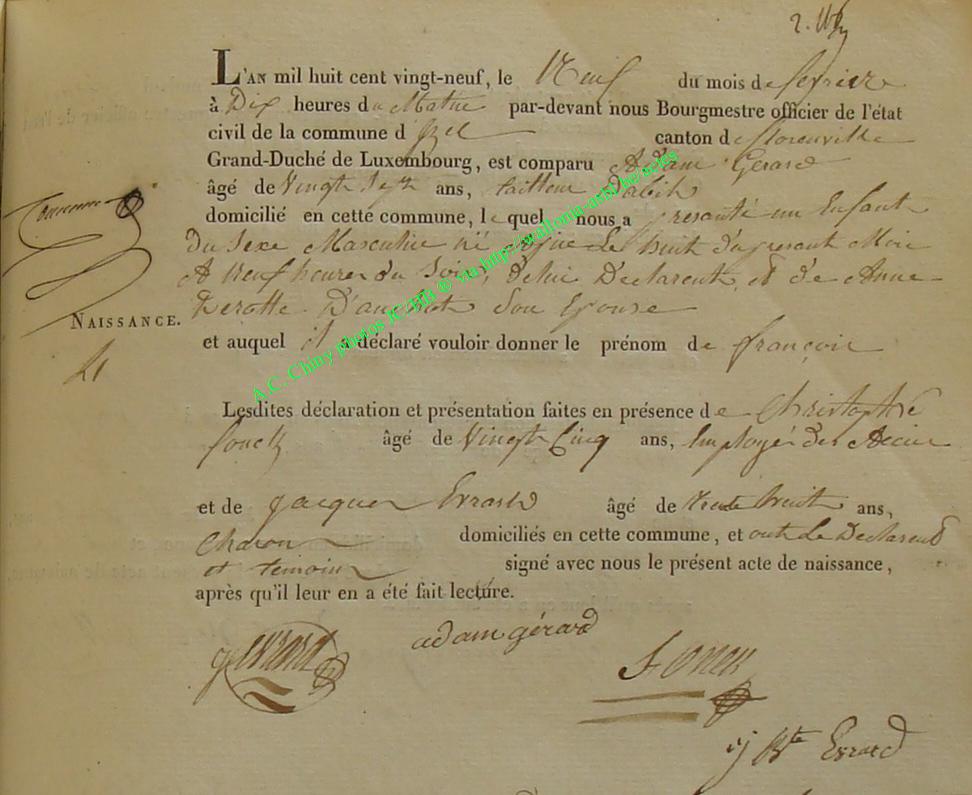 L'AN mil huit cent vingt-neuf, le Neuf du mois de fevrier
à Dix heures du Matin par-devant nous Bourgmestre officier de l'état
civil de la commune d'Izel canton de florenville
Grand-Duché de Luxembourg, est comparu Adam Gerard
âgé de Vingt Sept ans, tailleur d'abits
domicilié en cette commune, le quel nous a presenté un Enfant
Du Sexe Masculin né Izel Le huit du present Mois
A Neuf heures du Soir, de lui Declarent, et de Anne
Perotte Son Epouse
NAISSANCE.
et auquel il a déclaré vouloir donner le prénom de françois
4
Lesdites déclaration et présentation faites en présence de Christophe
fonck âgé de Vingt Cinq ans, Employé des Accises
et de Jacques Evrard âgé de trente huit ans,
Charon domiciliés en cette commune, et ont Le Declarent
et temoins signé avec nous le présent acte de naissance,
après qu'il leur en a été fait lecture.
adam gérard
j evrard
fonck
j Bte Evrard
A.C. Chiny photos JC/HB ® via http://wallonia-asbl.be/actes